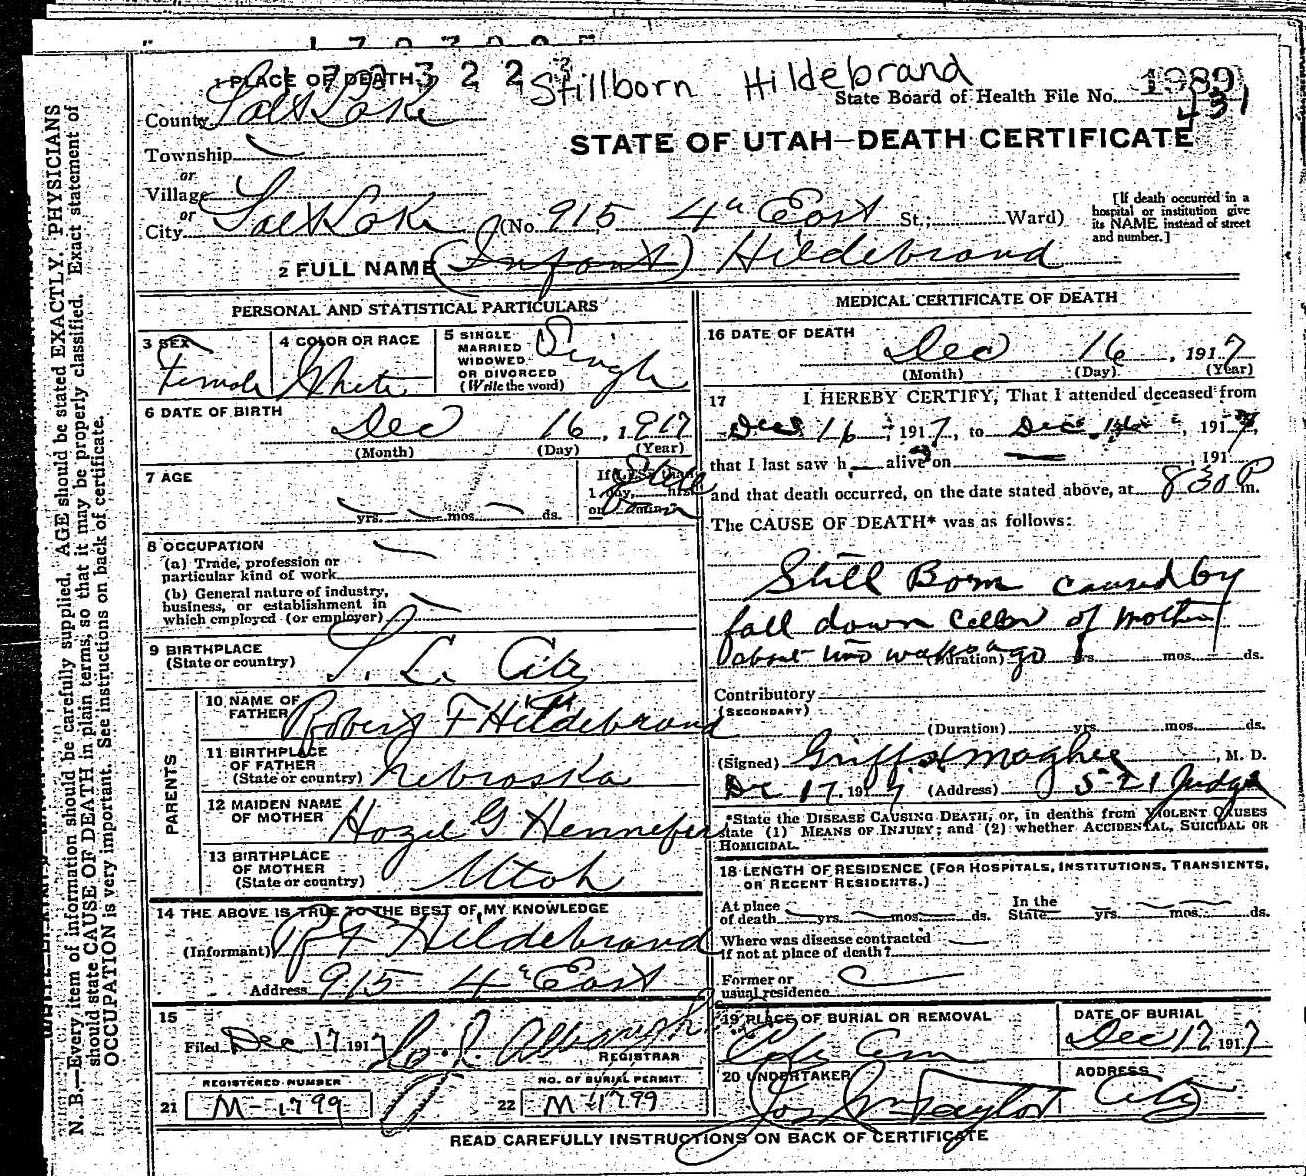 Stillborn Hildebrand
1 PLACE OF DEATH
State Board of Health File No. 1989
431
County Salt Lake
STATE OF UTAH—DEATH CERTIFICATE
Township
or
Village
or
City Salt Lake (No. 915 4" East St.; Ward)
[If death occurred in a
hospital or institution give
its NAME instead of street
and number.]
2 FULL NAME (Infant) Hildebrand
PERSONAL AND STATISTICAL PARTICULARS
3 SEX Female
4 COLOR OR RACE White
5 SINGLE
MARRIED
WIDOWED
OR DIVORCED
(Write the word)
Single
6 DATE OF BIRTH
Dec 16, 1917
(Month) (Day) (Year)
7 AGE
yrs. mos. ds.
If LESS than
1 day, hrs.
or min.
Still
Born
8 OCCUPATION
(a) Trade, profession or
particular kind of work
(b) General nature of industry,
business, or establishment in
which employed (or employer)
9 BIRTHPLACE
(State or country) S. L. City
PARENTS
10 NAME OF
FATHER Robert F Hildebrand
11 BIRTHPLACE
OF FATHER
(State or country) Nebraska
12 MAIDEN NAME
OF MOTHER Hazel G Hennefer
13 BIRTHPLACE
OF MOTHER
(State or country) Utah
14 THE ABOVE IS TRUE TO THE BEST OF MY KNOWLEDGE
(Informant) R F Hildebrand
Address 915 4" East
15
Filed Dec 17 1917
REGISTRAR
REGISTERED NUMBER
21 M-1799
NO. OF BURIAL PERMIT
22 M-1799
MEDICAL CERTIFICATE OF DEATH
16 DATE OF DEATH
Dec 16, 1917
(Month) (Day) (Year)
17 I HEREBY CERTIFY, That I attended deceased from
Dec 16, 1917, to Dec 16, 1917,
that I last saw h alive on 191
and that death occurred, on the date stated above, at 830 P m.
The CAUSE OF DEATH* was as follows:
Still Born caused by
fall down cellar of mother
about two weeks ago (Duration) yrs. mos. ds.
Contributory
(SECONDARY)
(Duration) yrs. mos. ds.
(Signed) , M. D.
Dec 17, 1917 (Address) 521 Judge
*State the DISEASE CAUSING DEATH, or, in deaths from VIOLENT CAUSES
state (1) MEANS OF INJURY; and (2) whether ACCIDENTAL, SUICIDAL OR
HOMICIDAL.
18 LENGTH OF RESIDENCE (FOR HOSPITALS, INSTITUTIONS, TRANSIENTS,
OR RECENT RESIDENTS.)
At place
of death yrs. mos. ds.
In the
State yrs. mos. ds.
Where was disease contracted
if not at place of death?
Former or
usual residence
19 PLACE OF BURIAL OR REMOVAL
City Cem
DATE OF BURIAL
Dec 17 1917
20 UNDERTAKER
Jos Wm Taylor
ADDRESS
City
READ CAREFULLY INSTRUCTIONS ON BACK OF CERTIFICATE
N. B.—Every item of information should be carefully supplied. AGE should be stated EXACTLY. PHYSICIANS
should state CAUSE OF DEATH in plain terms, so that it may be properly classified. Exact statement of
OCCUPATION is very important. See instructions on back of certificate.